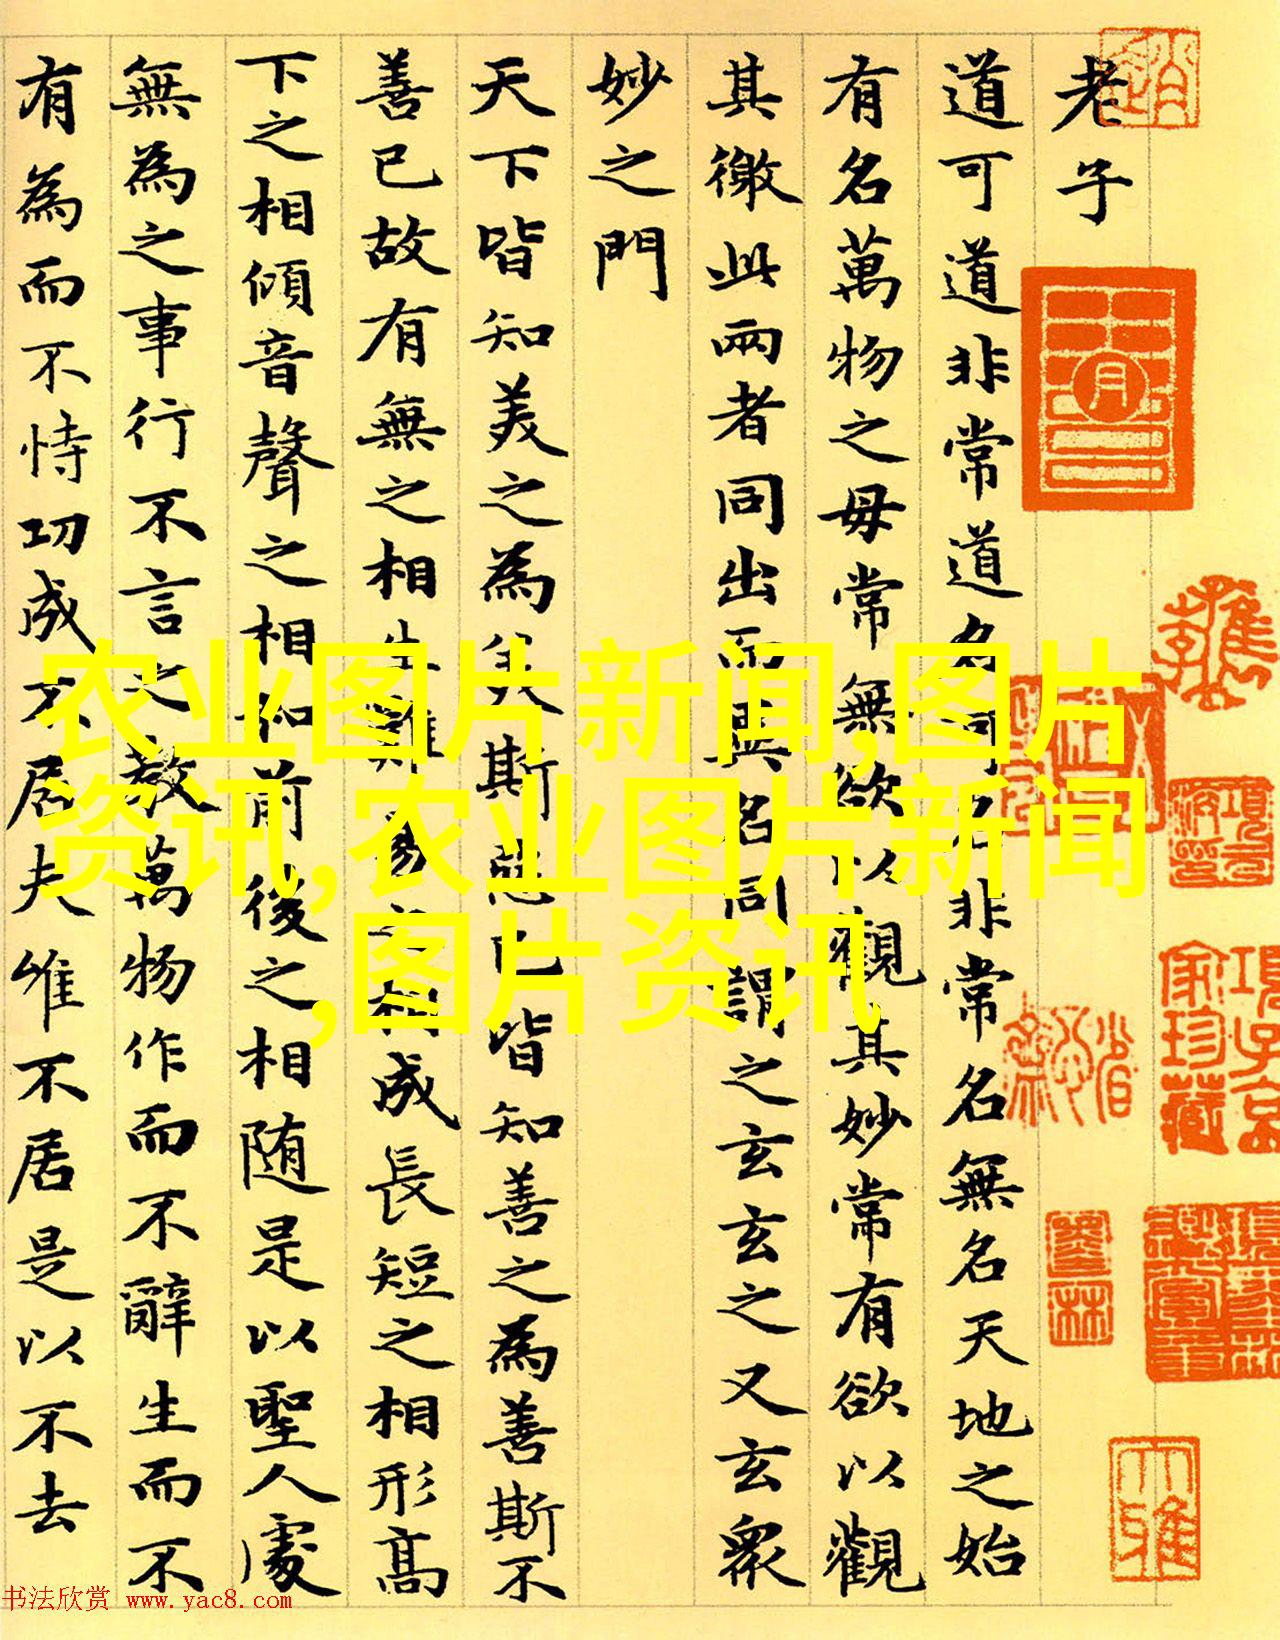 老子
道可道非常道名可名非常名無名天地之始
有名萬物之母常無欲以觀其妙常有欲以觀
其徼此兩者同出而異名同謂之玄玄之又玄衆
妙之門
天下皆知美之為美斯惡已皆知善之為善斯不
善已故有無之相生難易之相成長短之相形高
下之相傾音聲之相和前後之相随是以聖人處
無為之事行不言之教萬物作而不辭生而不
有為而不恃功成不居夫唯不居是以不去
农业图片新闻,图片
资讯,农业图片新闻
,图片资讯
項子京
家珍藏
书法欣赏 www.yac8.com